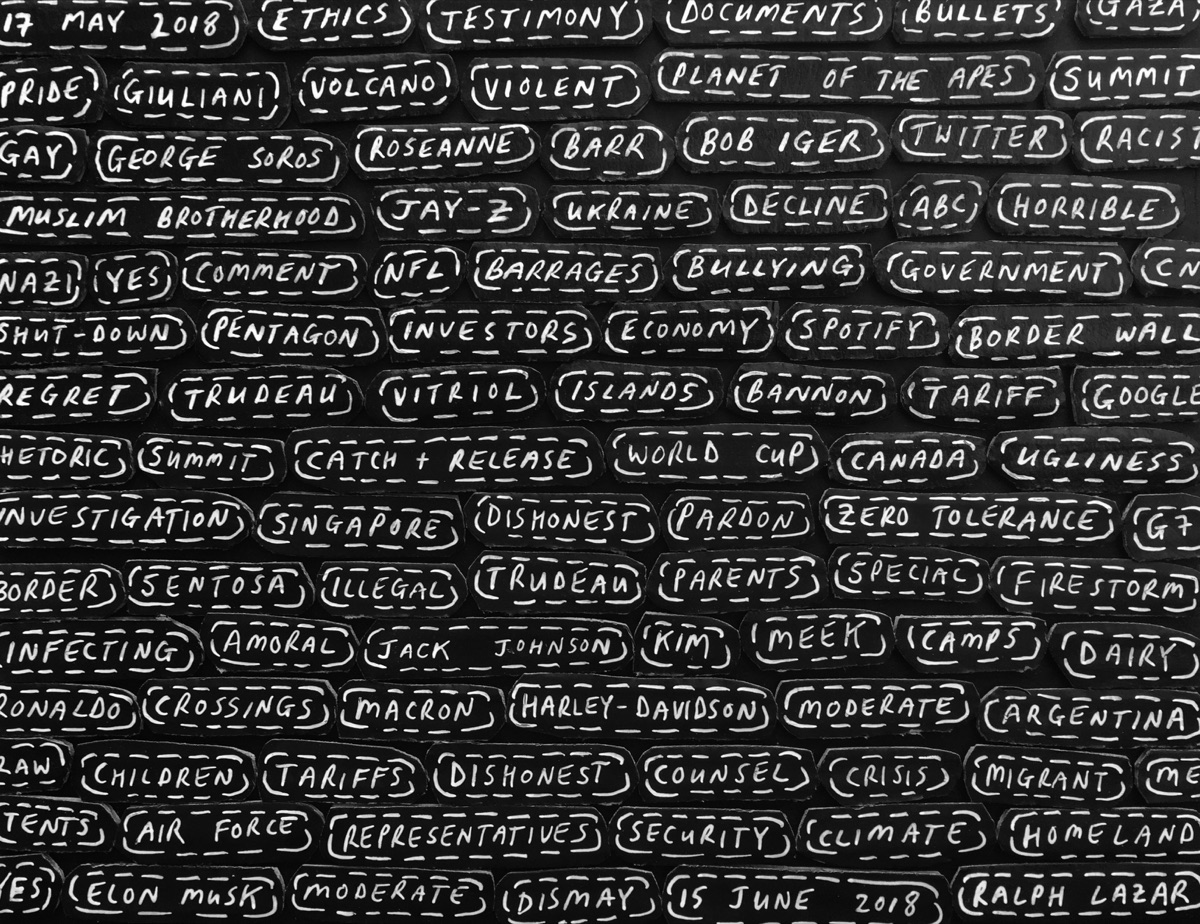 17 MAY 2018 ETHICS TESTIMONY DOCUMENTS BULLETS GAZA
PRIDE GIULIANI VOLCANO VIOLENT PLANET OF THE APES SUMMIT
GAY GEORGE SOROS ROSEANNE BARR BOB IGER TWITTER RACIS
MUSLIM BROTHERHOOD JAY-Z UKRAINE DECLINE ABC HORRIBLE
NAZI YES COMMENT NFL BARRAGES BULLYING GOVERNMENT CN
SHUT-DOWN PENTAGON INVESTORS ECONOMY SPOTIFY BORDER WALL
REGRET TRUDEAU VITRIOL ISLANDS BANNON TARIFF GOOGLE
HETORIC SUMMIT CATCH + RELEASE WORLD CUP CANADA UGLINESS
INVESTIGATION SINGAPORE DISHONEST PARDON ZERO TOLERANCE G7
BORDER SENTOSA ILLEGAL TRUDEAU PARENTS SPECIAL FIRESTORM
INFECTING AMORAL JACK JOHNSON KIM MEEK CAMPS DAIRY
RONALDO CROSSINGS MACRON HARLEY-DAVIDSON MODERATE ARGENTINA
RAW CHILDREN TARIFFS DISHONEST COUNSEL CRISIS MIGRANT ME
TENTS AIR FORCE REPRESENTATIVES SECURITY CLIMATE HOMELAND
YES ELON MUSK MODERATE DISMAY 15 JUNE 2018 RALPH LAZAR